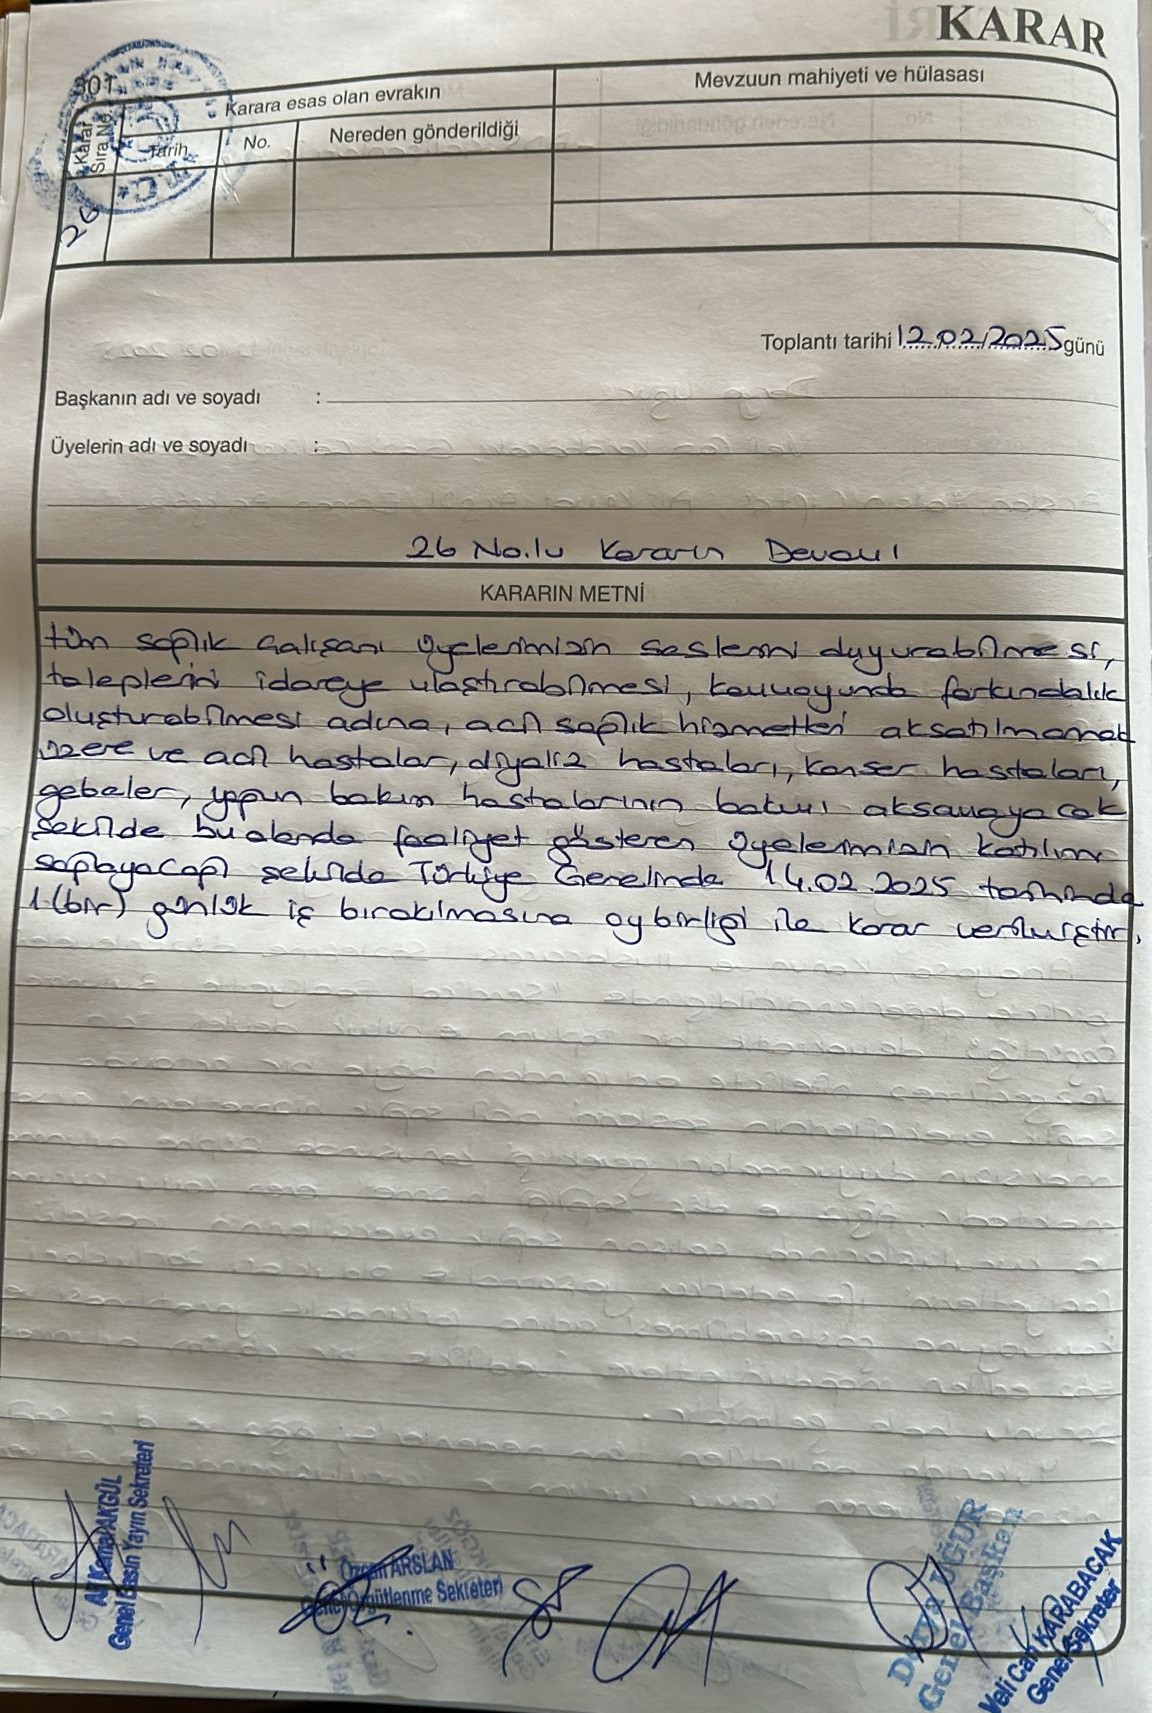 KARAR
301
Karar Sıra No.
Karara esas olan evrakın
Mevzuun mahiyeti ve hülasası
Tarih
No.
Nereden gönderildiği
26
T.C.
Toplantı tarihi 12.02/2025 günü
Başkanın adı ve soyadı :
Üyelerin adı ve soyadı :
26 No.lu Kararın Devamı
KARARIN METNİ
tüm sağlık çalışanı üyelerimizin seslerini duyurabilmesi,
taleplerini idareye ulaştırabilmesi, kamuoyunda farkındalık
oluşturabilmesi adına, acil sağlık hizmetleri aksatılmamak
üzere ve acil hastalar, diyaliz hastaları, kanser hastaları,
gebeler, yoğun bakım hastalarının bakımı aksamayacak
şekilde bu alanda faaliyet gösteren üyelerimizin katılımı
sağlayacağı şekilde Türkiye Genelinde 14.02.2025 tarihinde
1 (bir) günlük iş bırakılmasına oybirliği ile karar verilmiştir.
Ali Kemal AKGÜL
Genel Basın Yayın Sekreteri
Özcan ARSLAN
Genel Örgütlenme Sekreteri
Derya UĞUR
Genel Başkan
Veli Can KARABACAK
Genel Sekreter